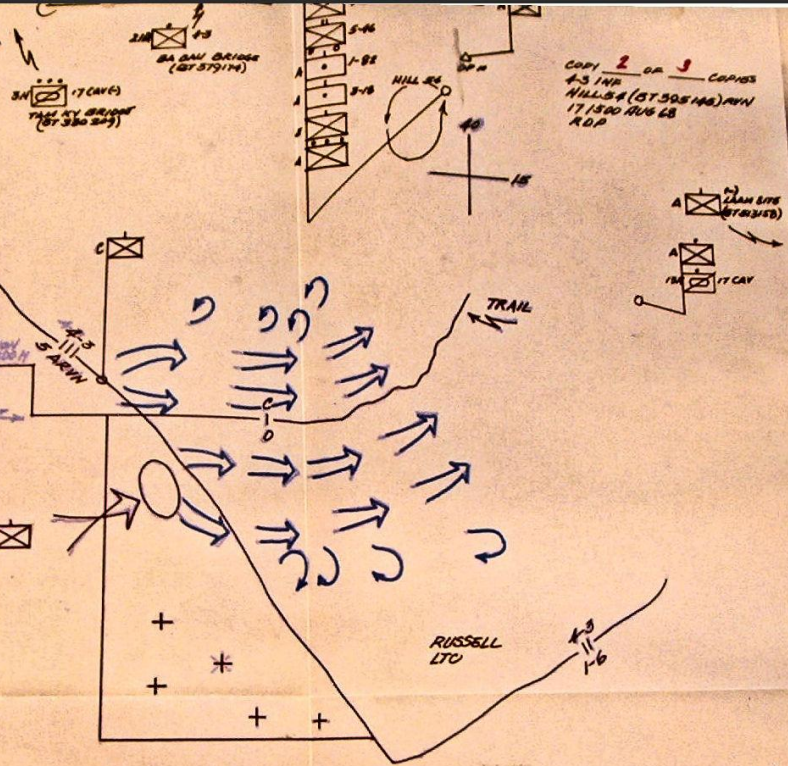 4-3
BA BAU BRIDGE
(BT 379174)
3H
17 CAV(-)
TAM KY BRIDGE
(BT 330209)
5-46
A
1-82
A
3-18
A
A
HILL 54
OP H
40
15
COPY 2 OF 3 COPIES
4-3 INF
HILL 54 (BT 395145) RVN
171500 AUG 68
RDP
A
(-)
LAAM SITE
A
17 CAV
C
TRAIL
4-3
5 ARVN
C
D
RUSSELL
LTC
4-3
1-6